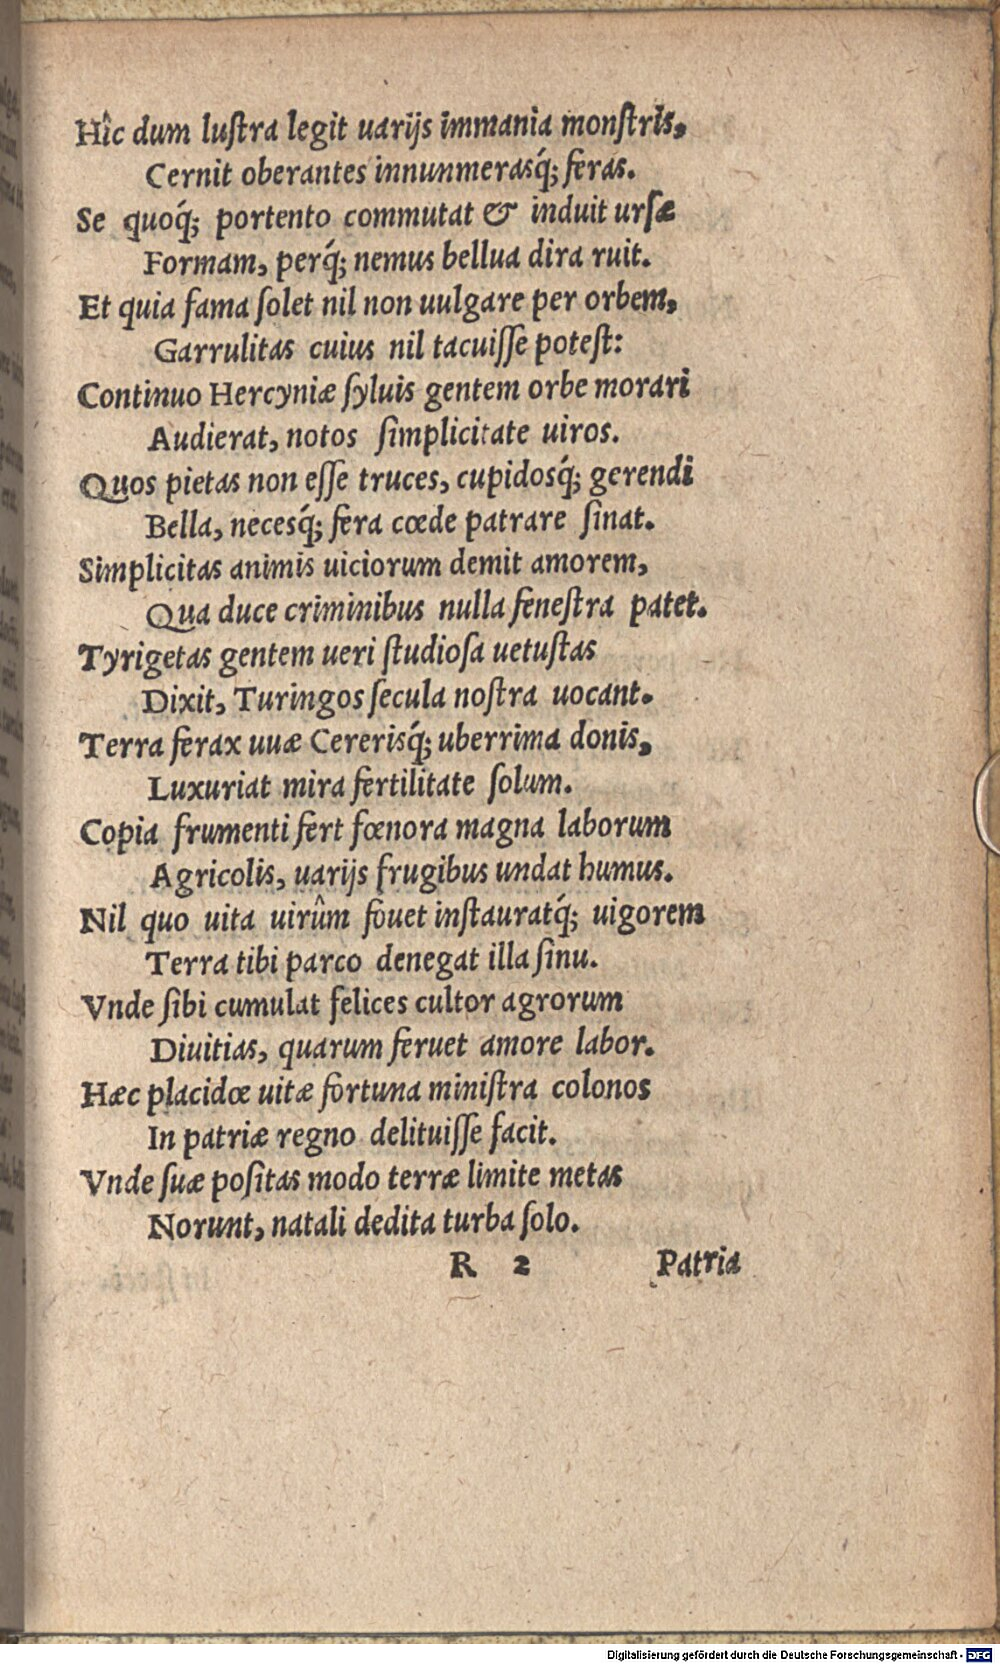 Hîc dum luſtra legit uarijs immania monſtris,
Cernit oberantes innunmerasq́; feras.
Se quoq́; portento commutat & induit urſæ
Formam, perq́; nemus bellua dira ruit.
Et quia fama ſolet nil non uulgare per orbem,
Garrulitas cuius nil tacuiſſe poteſt:
Continuo Hercyniæ ſyluis gentem orbe morari
Audierat, notos ſimplicitate uiros.
Quos pietas non eſſe truces, cupidosq́; gerendi
Bella, necesq́; fera cœde patrare ſinat.
Simplicitas animis uiciorum demit amorem,
Qua duce criminibus nulla feneſtra patet.
Tyrigetas gentem ueri ſtudioſa uetuſtas
Dixit, Turingos ſecula noſtra uocant.
Terra ferax uuæ Cererisq́; uberrima donis,
Luxuriat mira fertilitate ſolum.
Copia frumenti fert fœnora magna laborum
Agricolis, uarijs frugibus undat humus.
Nil quo uita uirûm fouet inſtauratq́; uigorem
Terra tibi parco denegat illa ſinu.
Vnde ſibi cumulat felices cultor agrorum
Diuitias, quarum feruet amore labor.
Hæc placidœ uitæ fortuna miniſtra colonos
In patriæ regno delituiſſe facit.
Vnde ſuæ poſitas modo terræ limite metas
Norunt, natali dedita turba ſolo.
R 2 Patria
Digitalisierung gefördert durch die Deutsche Forschungsgemeinschaft - DFG